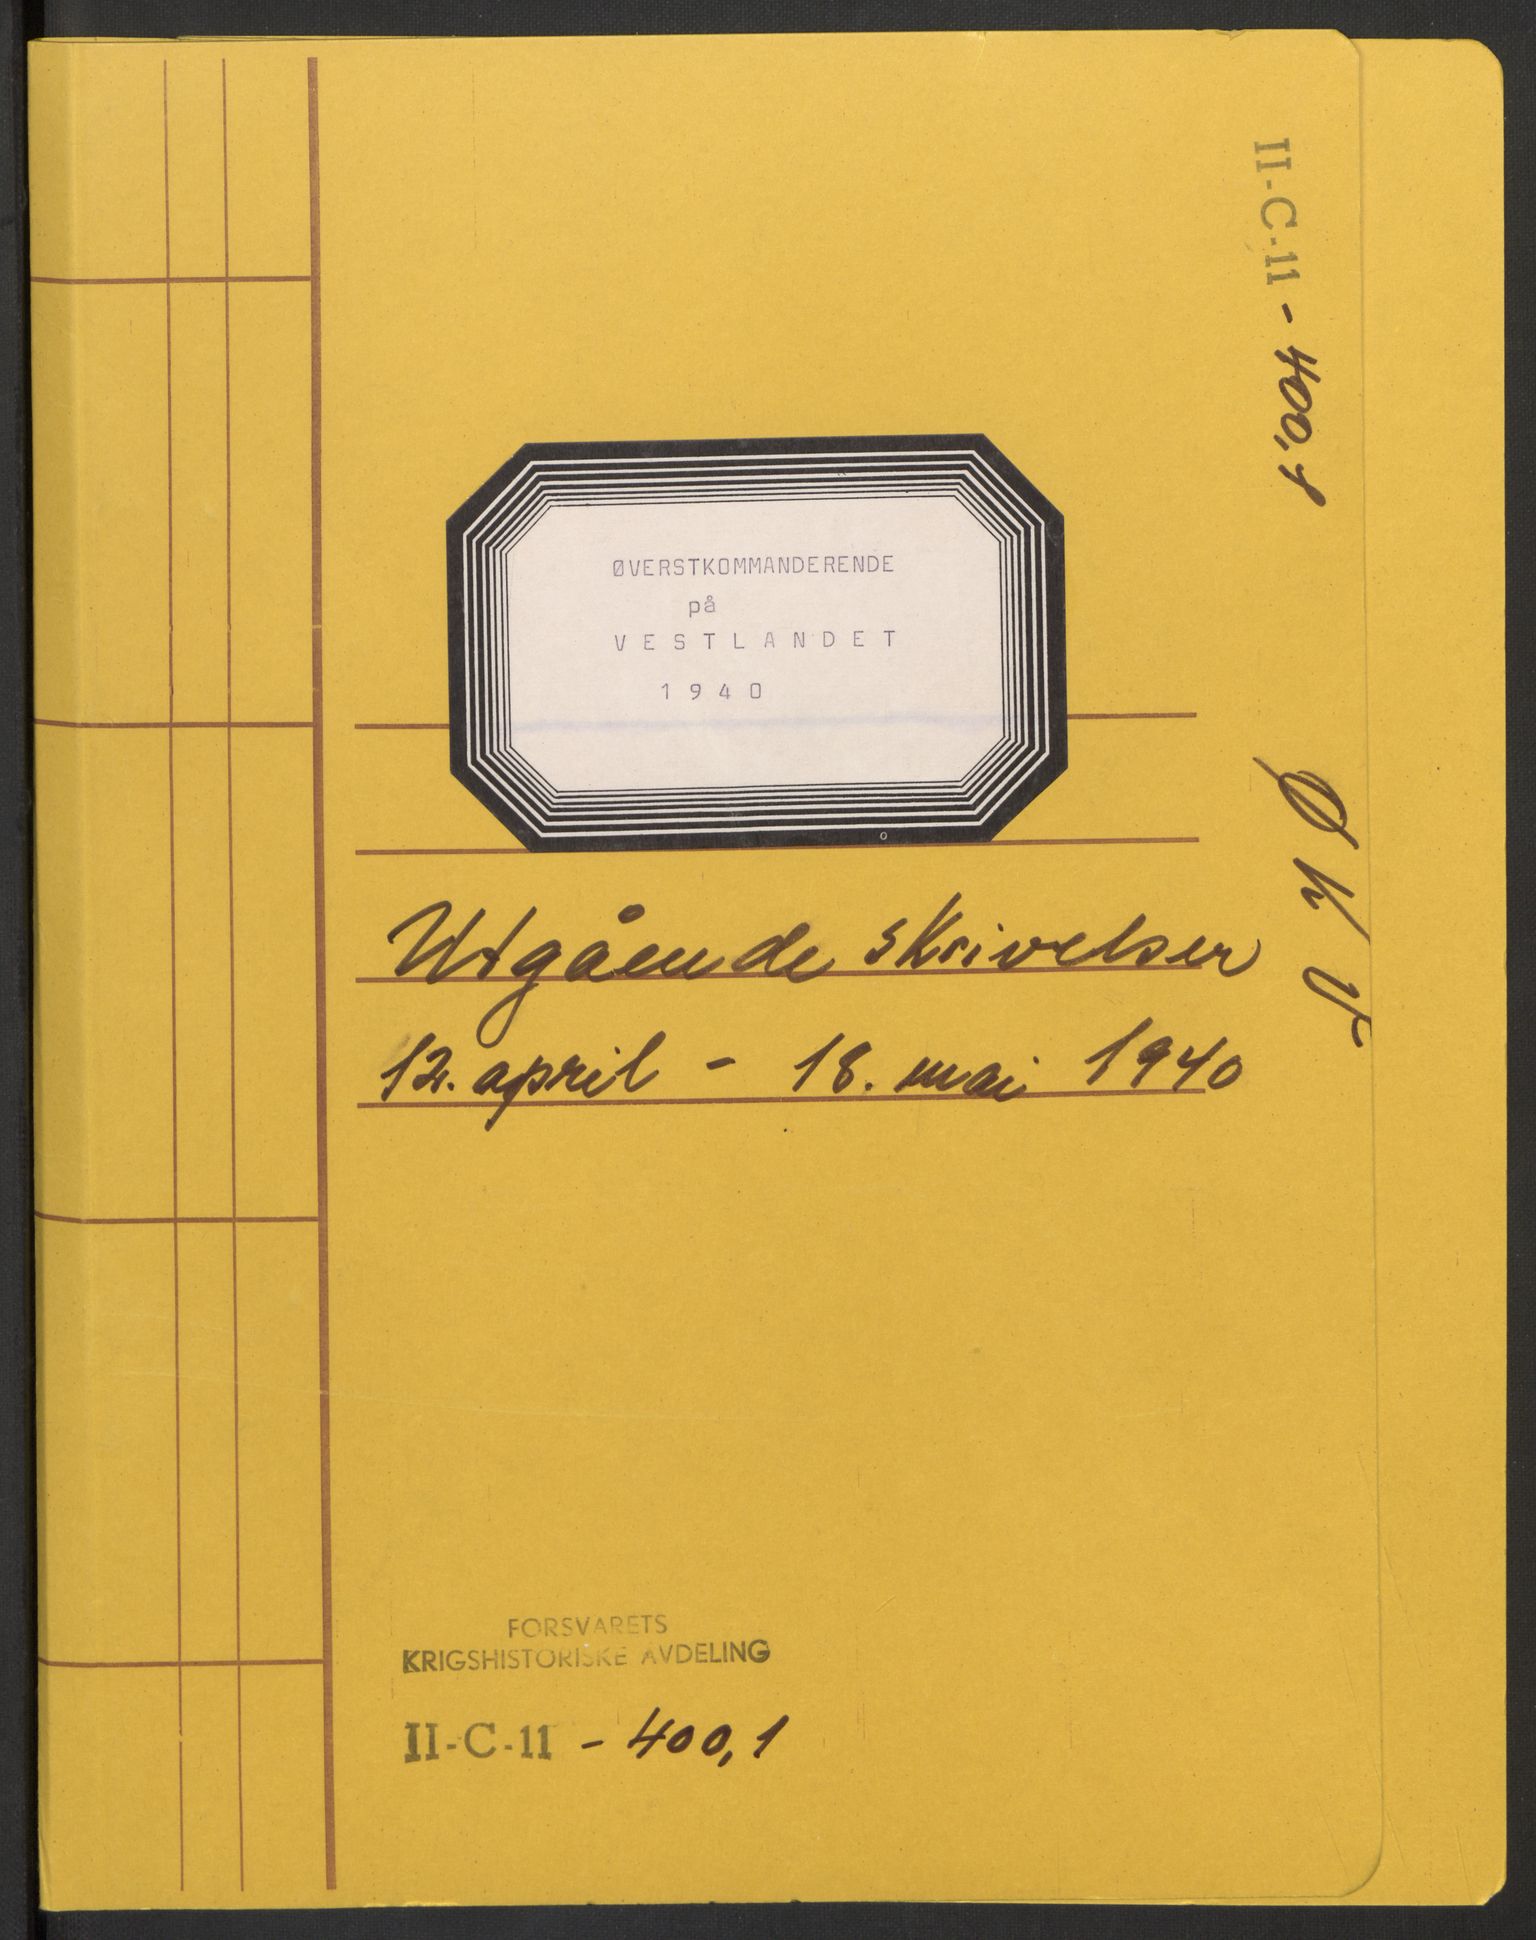 II-C-11 - 400,1
ØVERSTKOMMANDERENDE
på
VESTLANDET
1940
Ø K V
Utgående skrivelser
12. april - 18. mai 1940
FORSVARETS
KRIGSHISTORISKE AVDELING
II-C-11 - 400,1